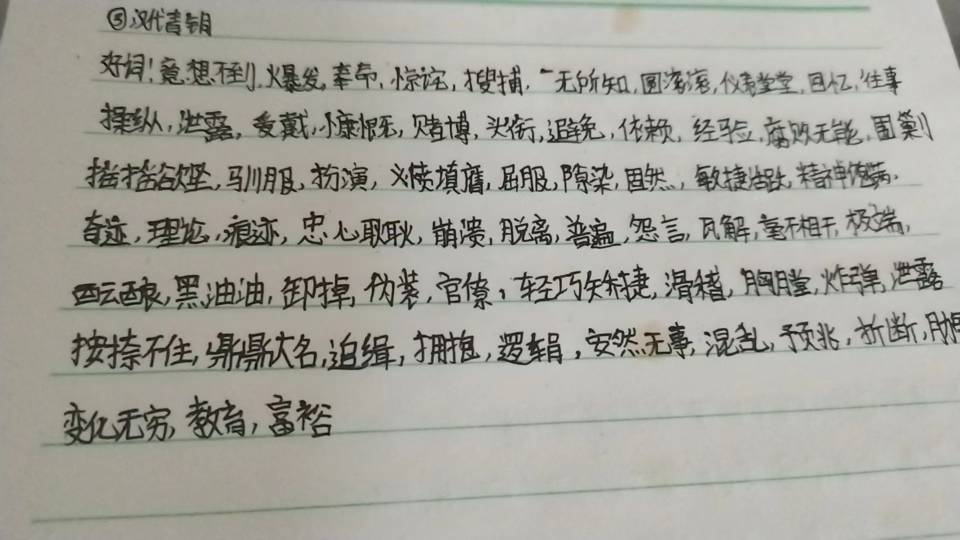 ⑤汉代青铜
好词!竟想不到,爆发,牵带,惊诧,搜捕,一无所知,圆滚滚,仪表堂堂,回忆,往事
操纵,泄露,爱戴,慷慨,赌博,头衔,退避免,依赖,经验,腐败无能,围剿
摇摇欲坠,驯服,扮演,义愤填膺,屈服,隙染,固然,敏捷活跃,精神饱满,
奇迹,理论,痕迹,忠心耿耿,崩溃,脱离,普遍,怨言,瓦解,毫不相干,极端,
酝酿,黑油油,卸掉,伪装,官僚,轻巧矫捷,滑稽,胸膛,炸弹,泄露
按捺不住,鼎鼎大名,追缉,拥抱,逻辑,安然无事,混乱,预兆,折断,
变化无穷,教育,富裕